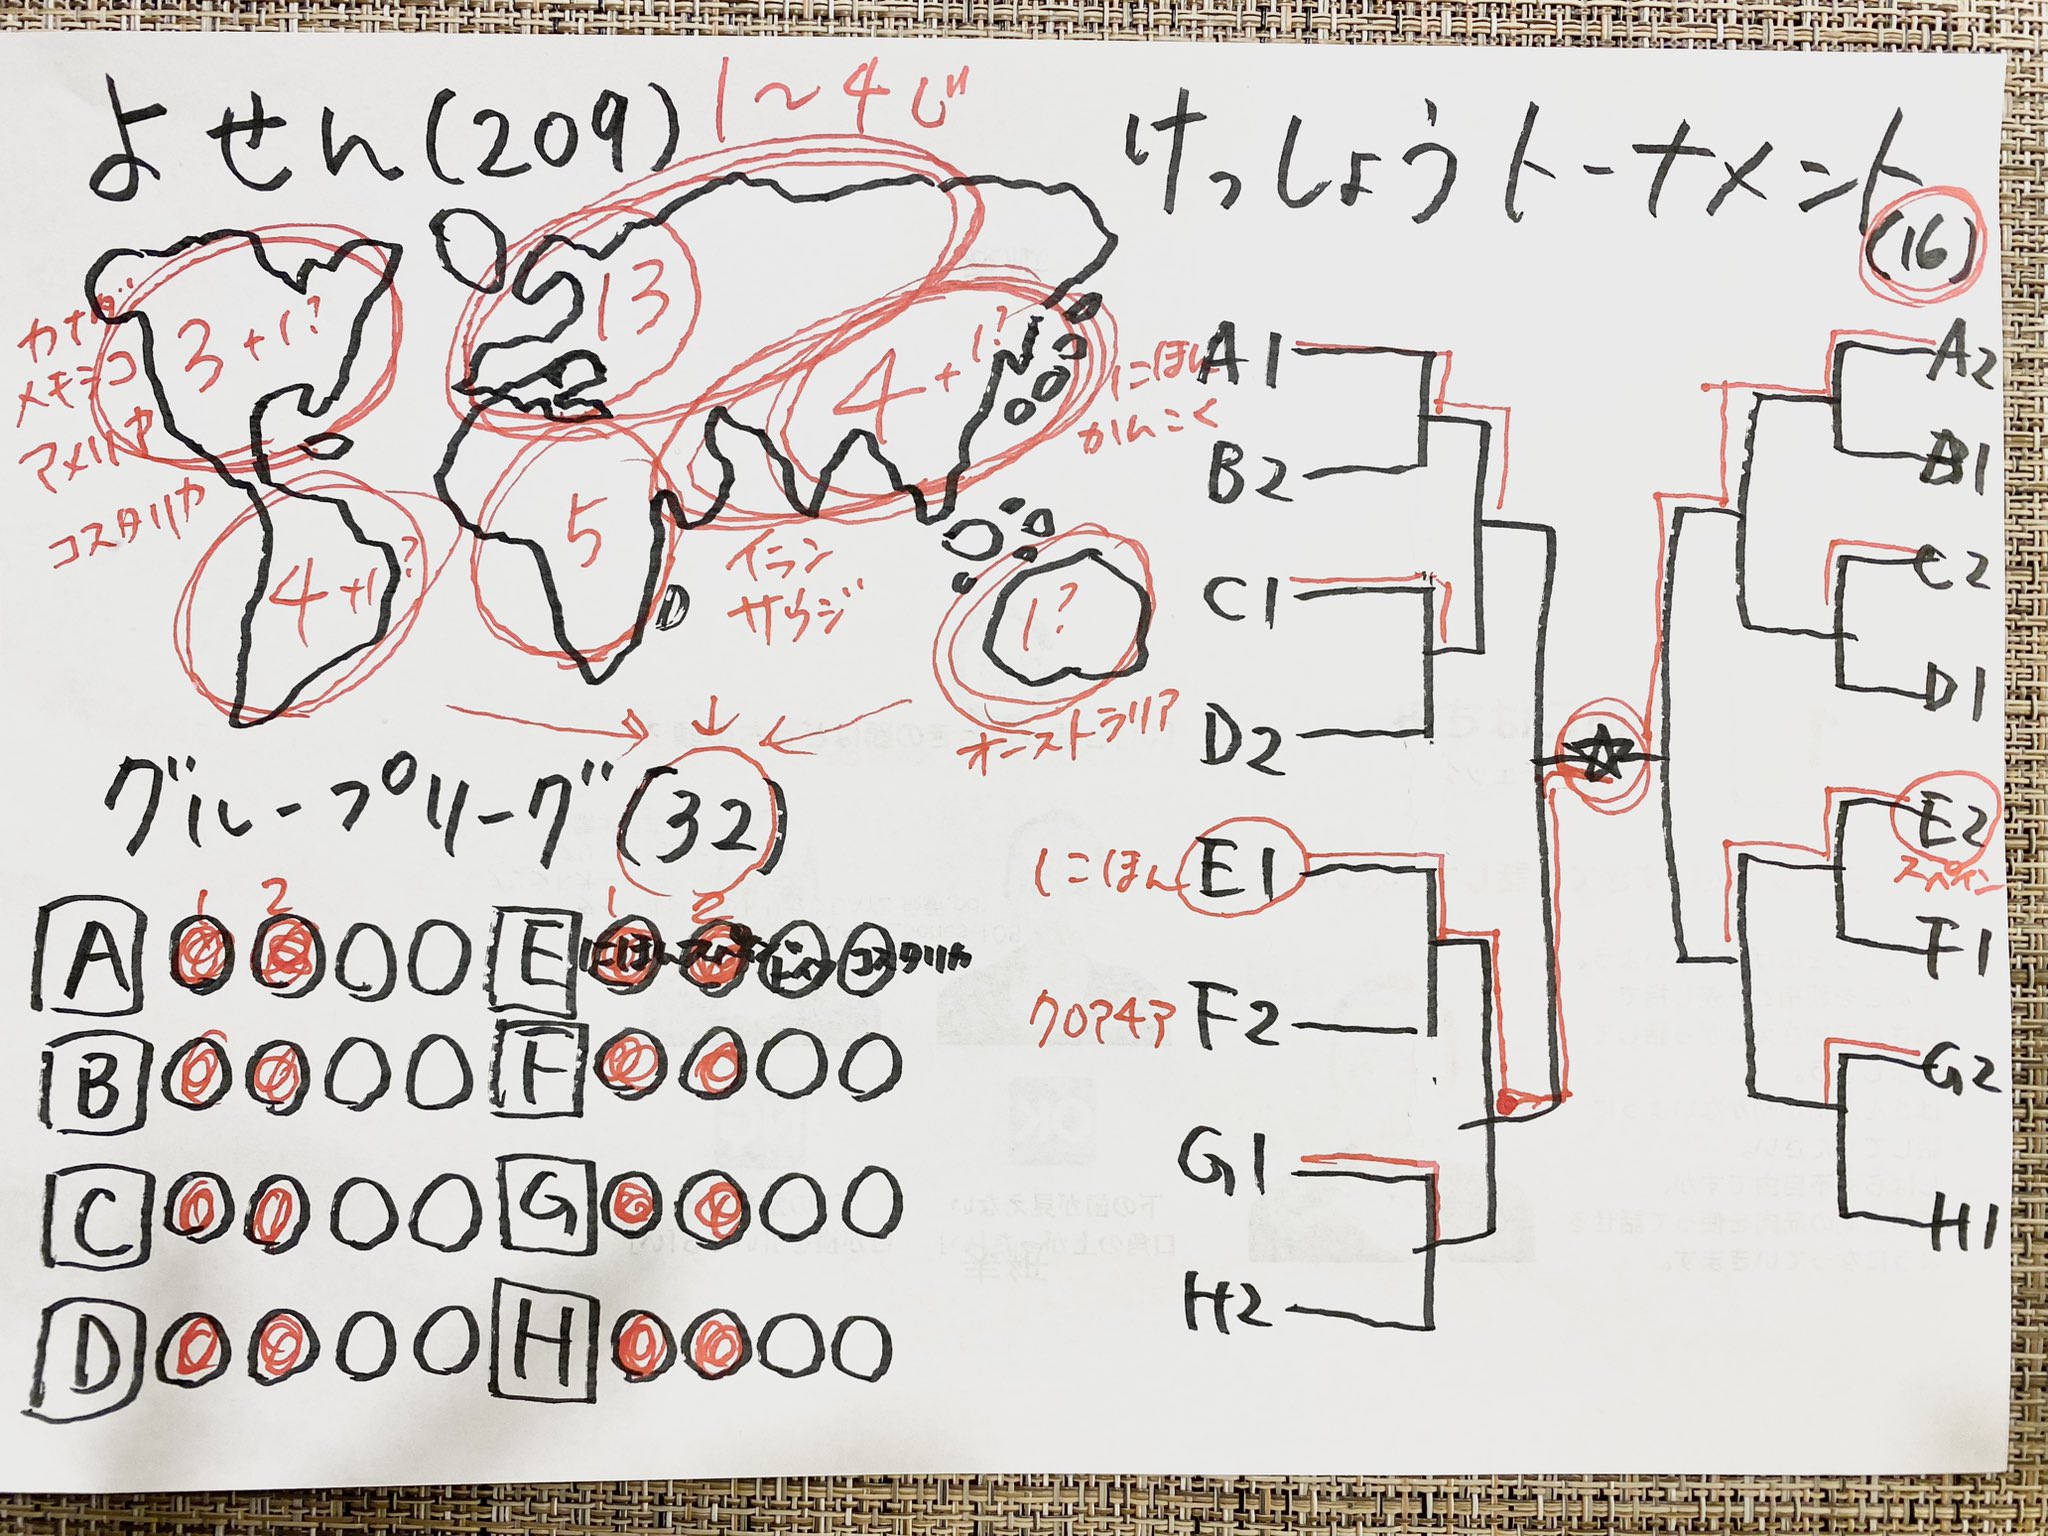 よせん(209)
1〜4じ
3+1?
13
4+1?
カナダ
メキシコ
アメリカ
コスタリカ
にほん
かんこく
4+1?
5
イラン
サウジ
1?
オーストラリア
グループリーグ(32)
1 2 1 2
A E にほん スペイン ドイツ コスタリカ
B F
C G
D H
けっしょうトーナメント
(16)
A1 A2
B2 B1
C1 C2
D2 D1
☆
にほん E1 E2
スペイン
クロアチア F2 F1
G1 G2
H2 H1